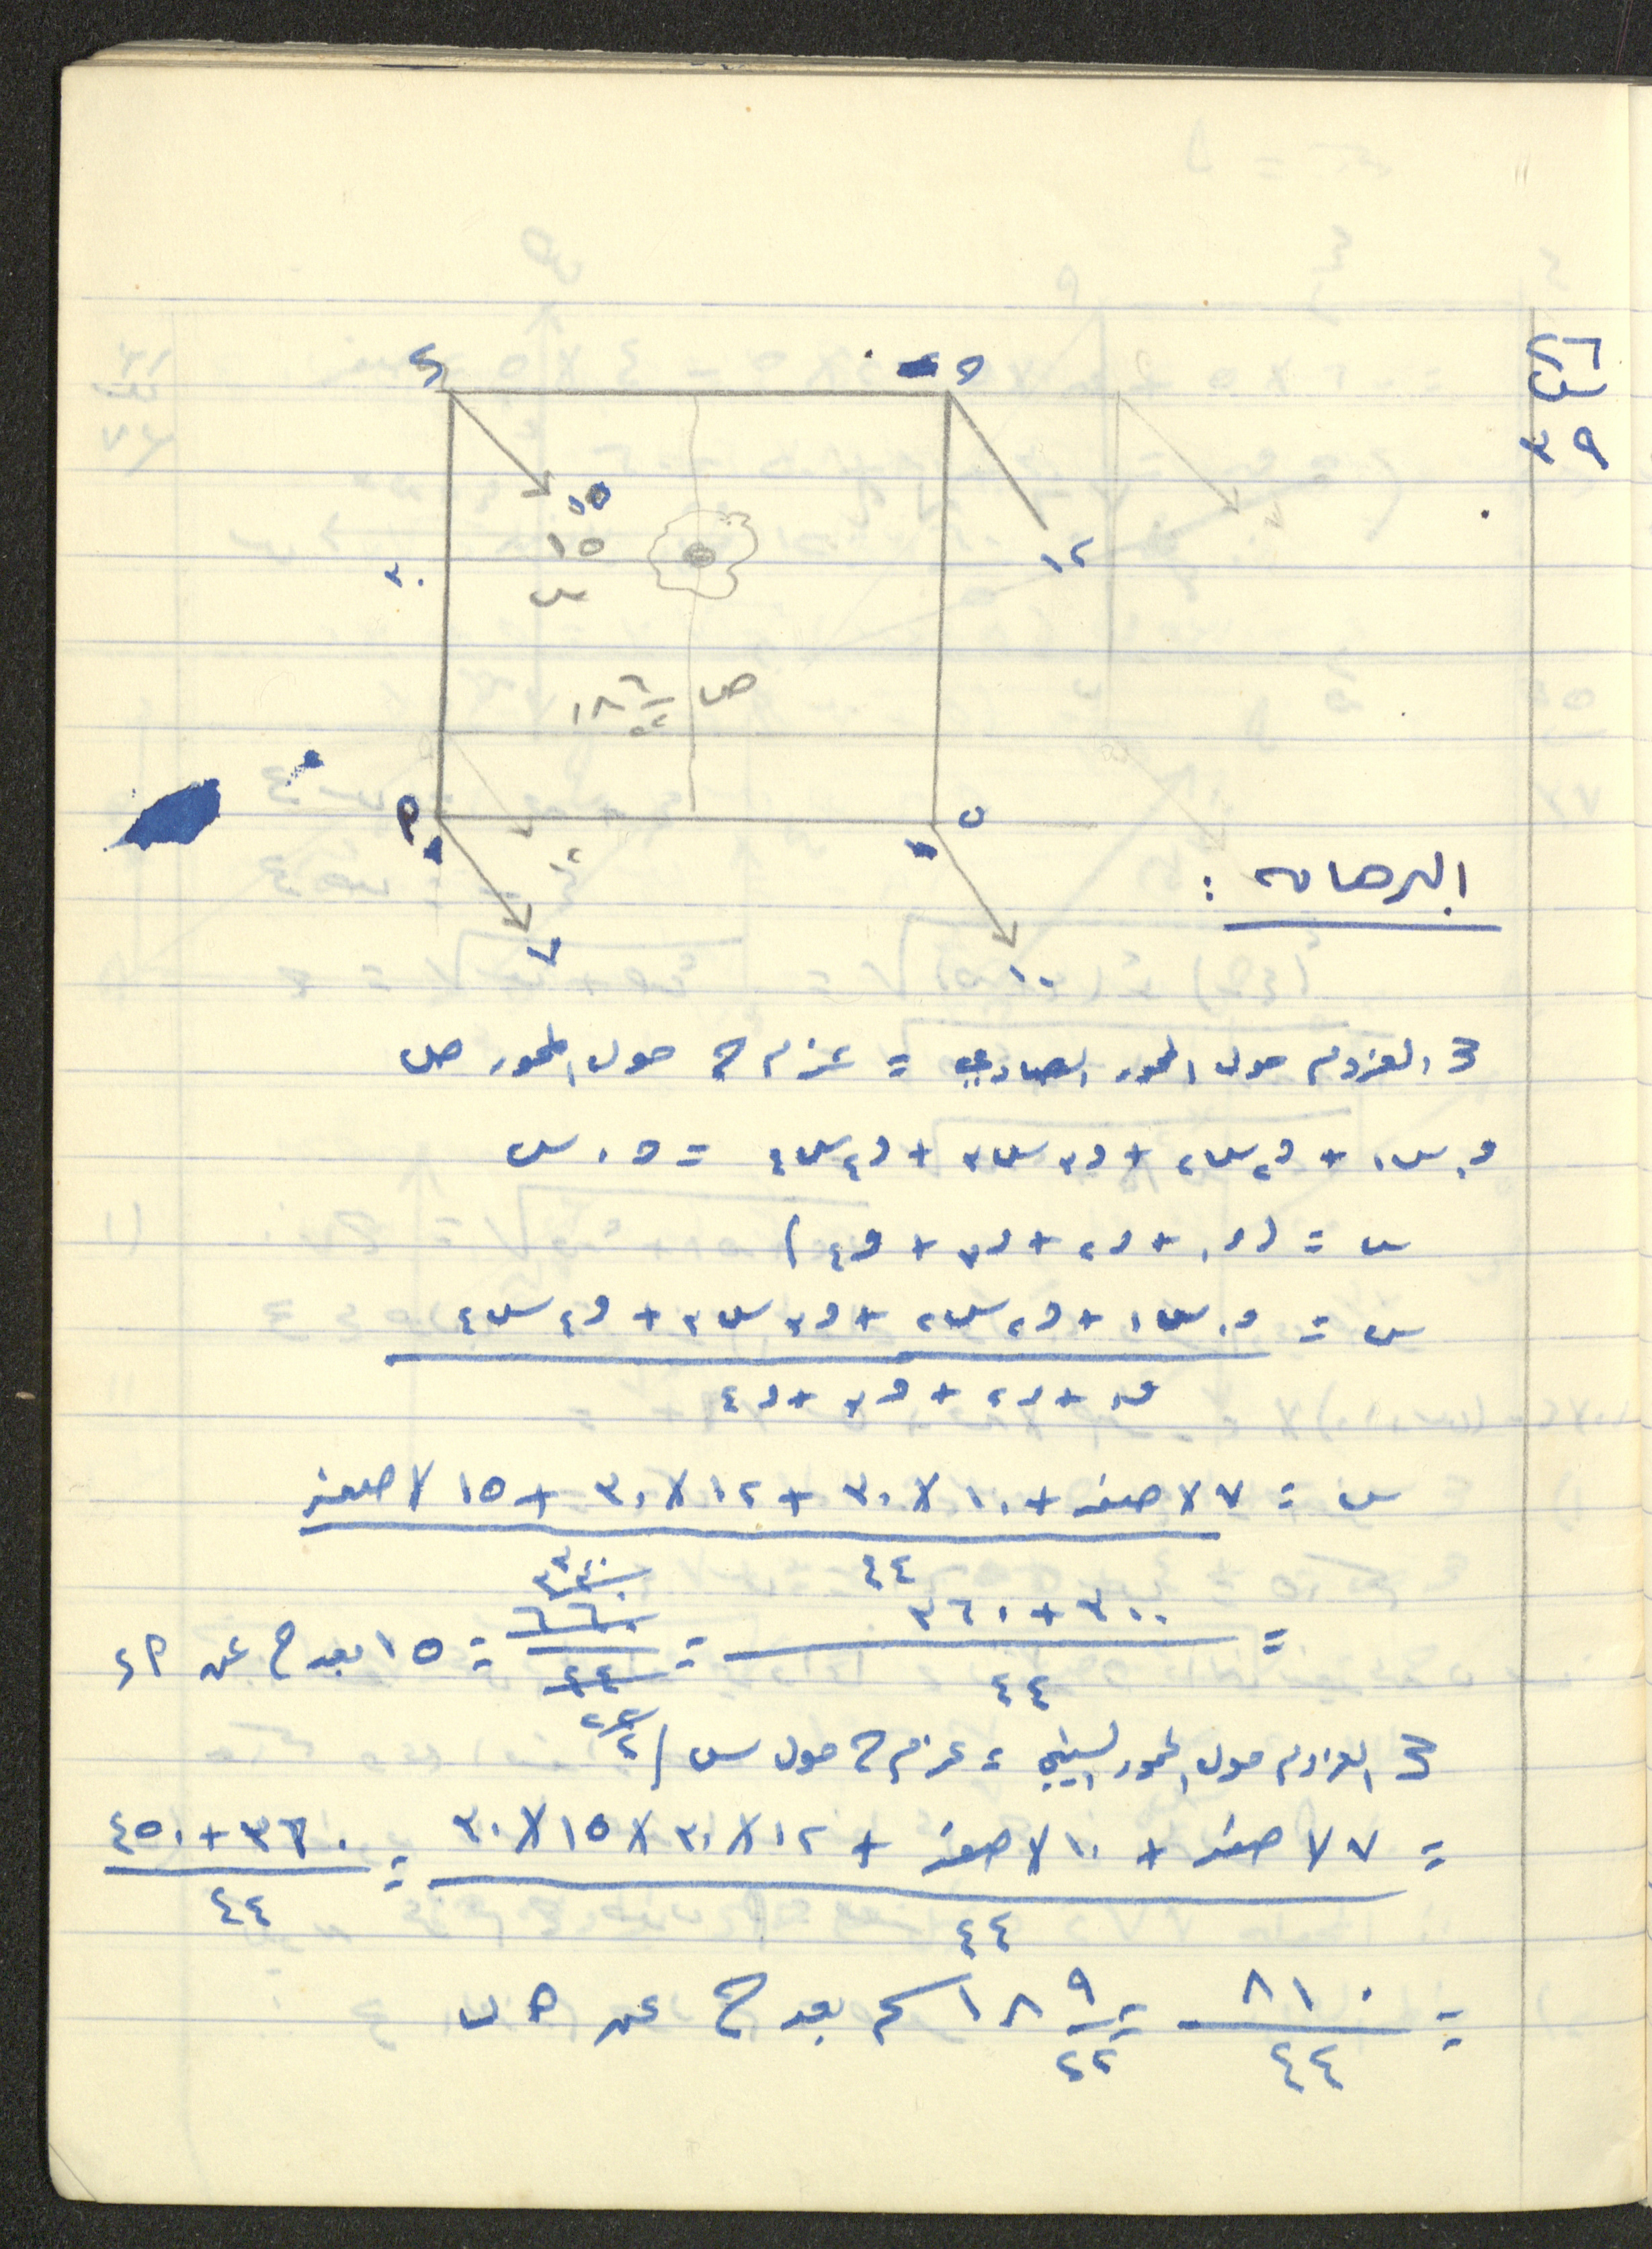 ٢٦
س
٣٩
د
هـ
١٥
١٥
س
٣٠
١٢
ص ١٨ ٦/٢٢
ب
٧
١٠
البرهان :
العزوم حول المحور الصادي = عزم ح حول المحور ص
و١ س١ + و٢ س٢ + و٣ س٣ + و٤ س٤ = س
س = (و١ + و٢ + و٣ + و٤)
س = و١ س١ + و٢ س٢ + و٣ س٣ + و٤ س٤
و١ + و٢ + و٣ + و٤
س = ٧ × صفر + ١٠ × ٣٠ + ١٢ × ٣٠ + ١٥ × صفر
٤٤
= ٣٠٠ + ٣٦٠ / ٤٤ = ٦٦٠ / ٤٤ = ١٥ بعد ح عن
٣٣٠
٢٢
العزوم حول المحور السيني = عزم ح حول س /
= ٧ × صفر + ١٠ × صفر + ١٢ × ٣٠ × ١٥ × ٣٠ / ٤٤ = ٣٦٠ + ٤٥٠ / ٤٤
= ٨١٠ / ٤٤ = ١٨ ٩/٢٢ سم بعد ح عن